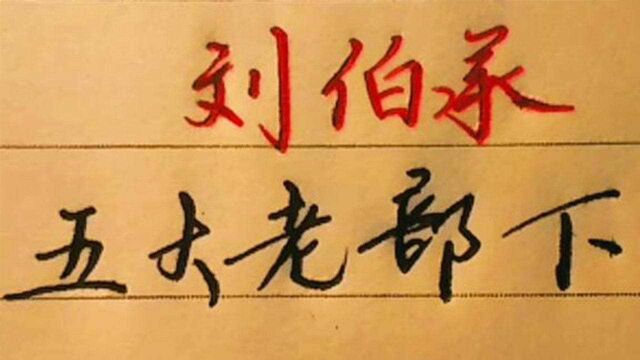 刘伯承
五大老部下